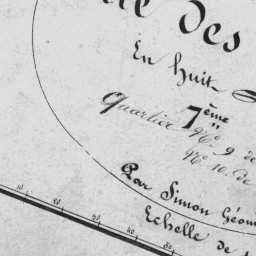 des
En huit
7ème
Quartier N.º 9 de
N.º 10. de
Par Simon Géom
Echelle de
10 20 30 40 50